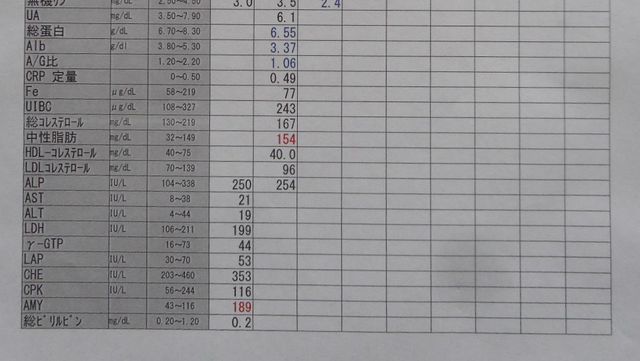 無機リン mg/dL 2.50~4.50 3.0 3.5 2.4
UA mg/dL 3.50~7.90 6.1
総蛋白 g/dL 6.70~8.30 6.55
Alb g/dl 3.80~5.30 3.37
A/G比 1.20~2.20 1.06
CRP 定量 0~0.50 0.49
Fe μg/dL 58~219 77
UIBC μg/dL 108~327 243
総コレステロール mg/dL 130~219 167
中性脂肪 mg/dL 32~149 154
HDL-コレステロール mg/dL 40~75 40.0
LDLコレステロール mg/dL 70~139 96
ALP IU/L 104~338 250 254
AST IU/L 8~38 21
ALT IU/L 4~44 19
LDH IU/L 106~211 199
γ-GTP 16~73 44
LAP IU/L 30~70 53
CHE IU/L 203~460 353
CPK IU/L 56~244 116
AMY 43~116 189
総ビリルビン mg/dL 0.20~1.20 0.2